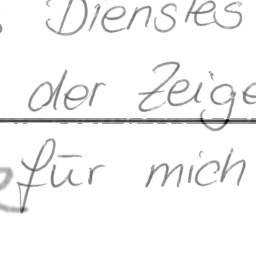 Dienstes
der Zeige
für mich